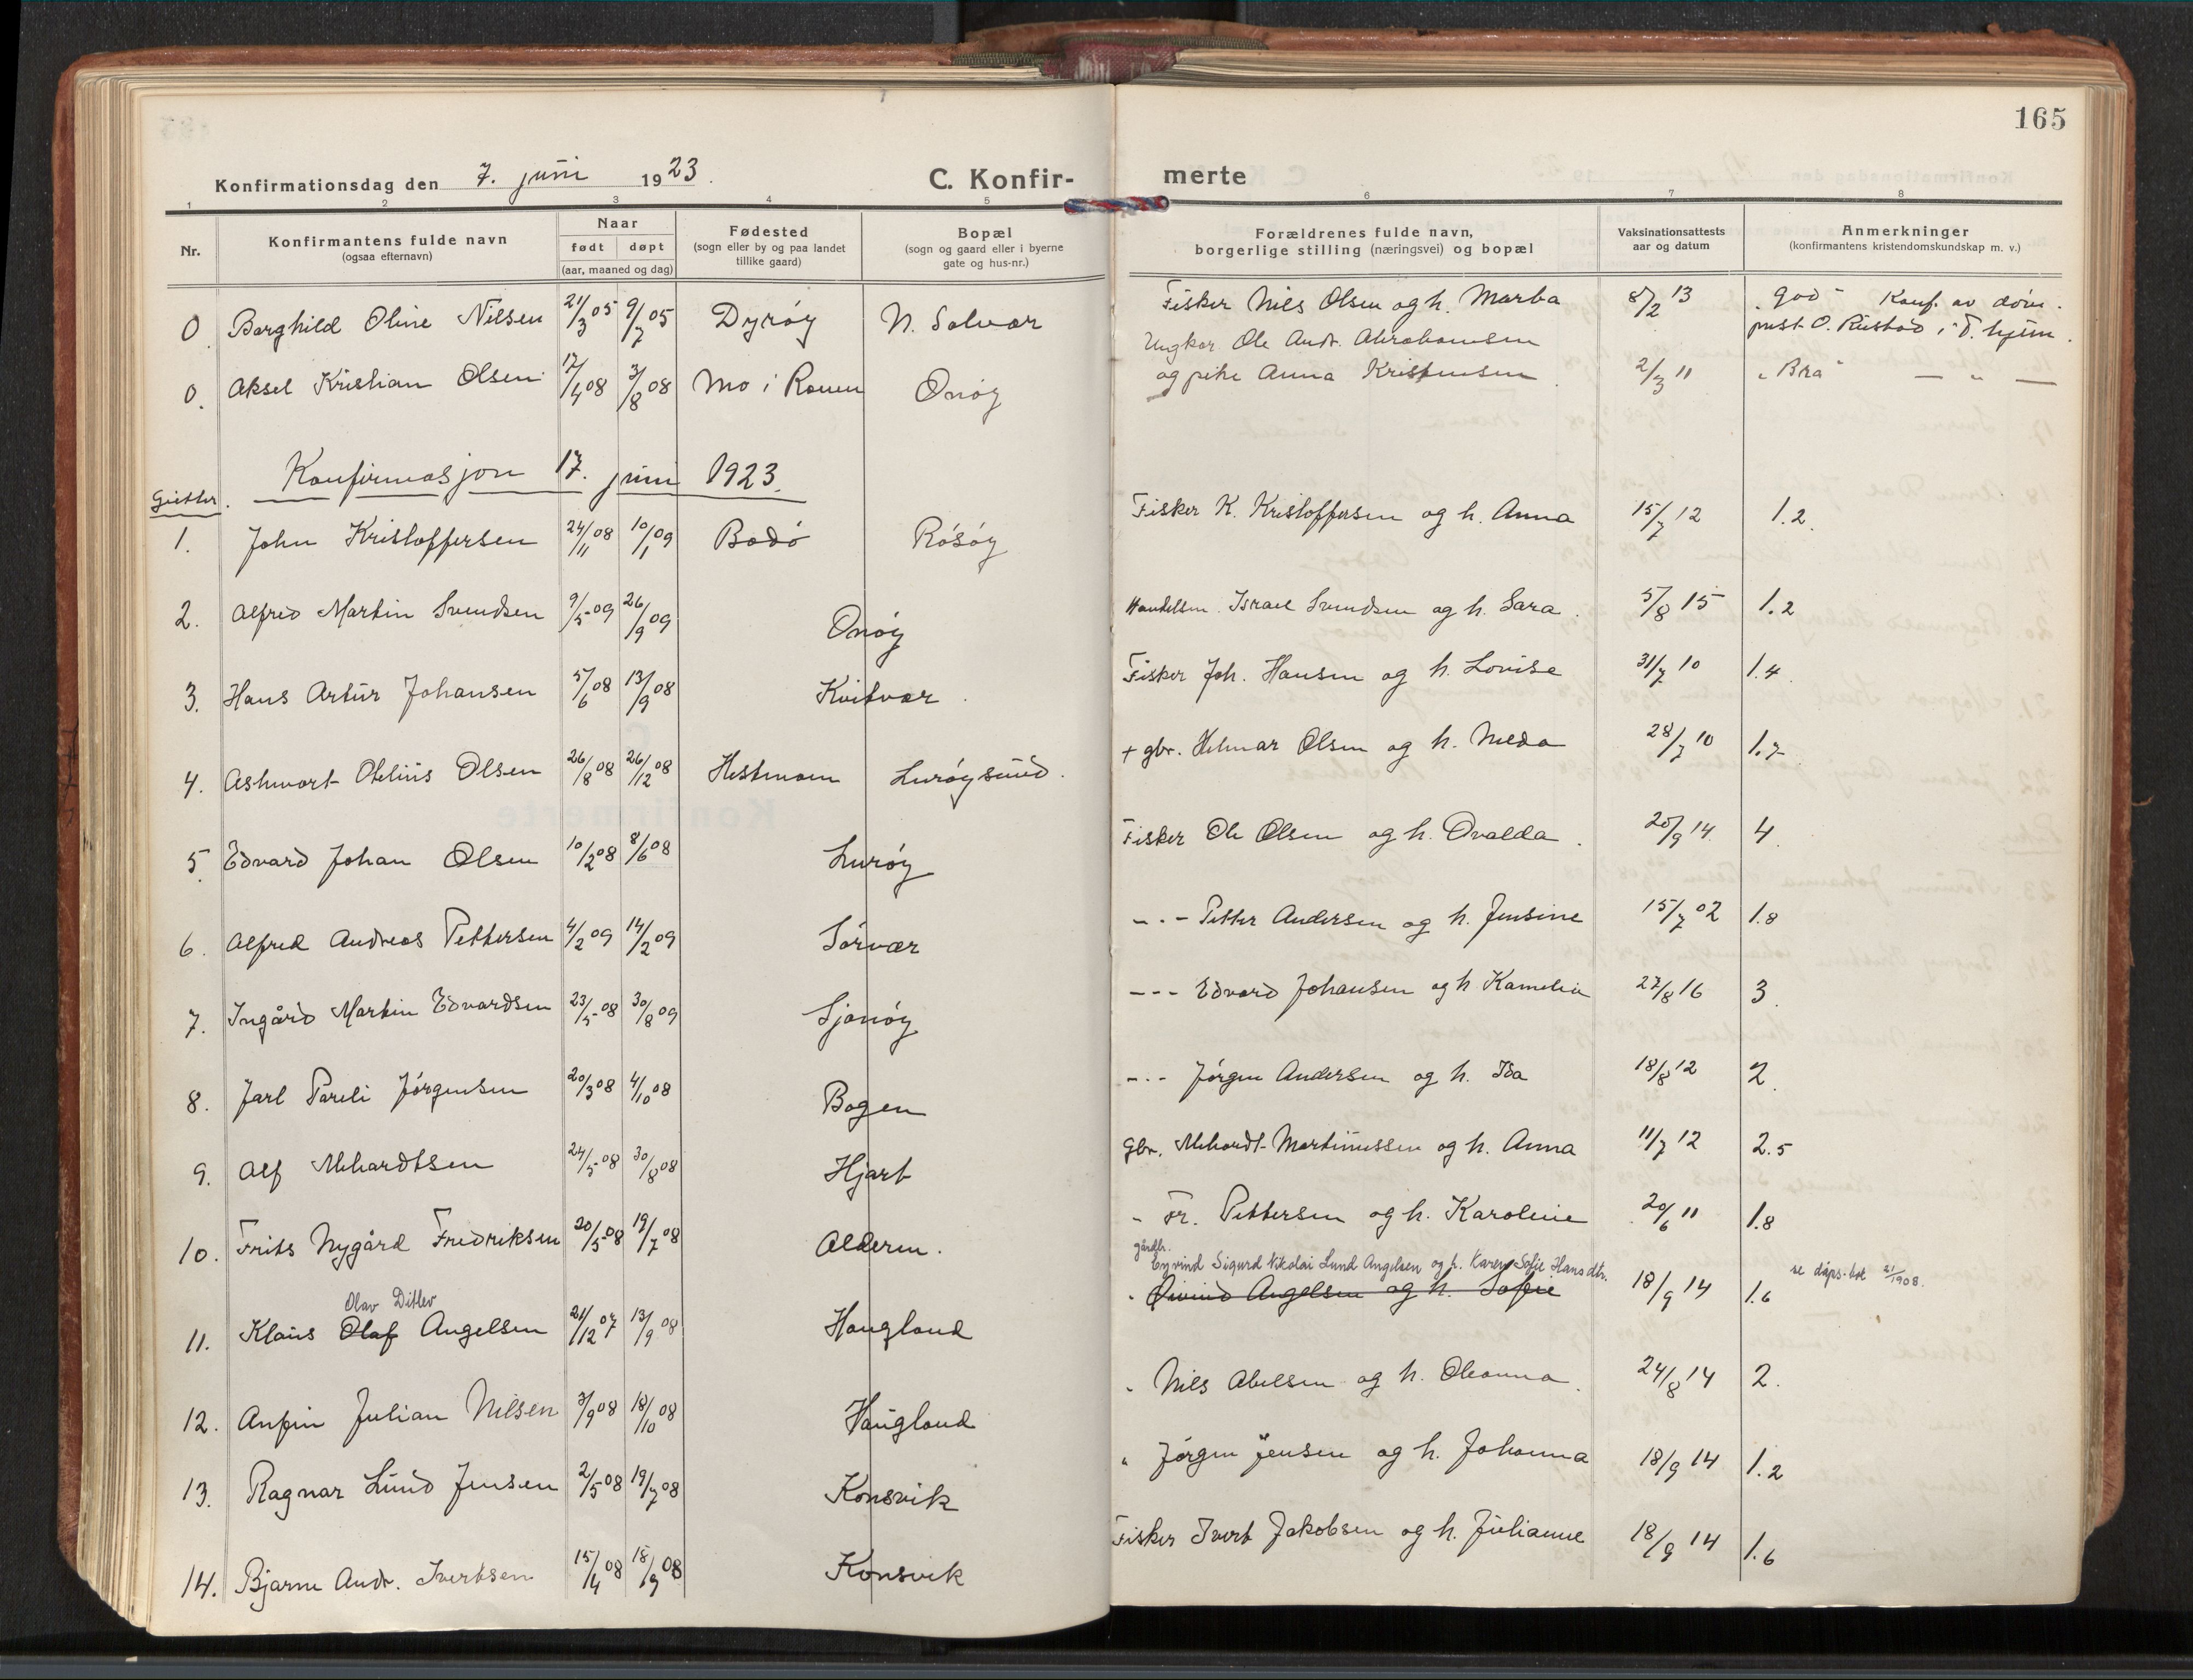 165
Konfirmationsdag den 7. juni 1923.
C. Konfir-merte
1 2 3 4 5 6 7 8
Nr.
Konfirmantens fulde navn
(ogsaa efternavn)
Naar
født døpt
(aar, maaned og dag)
Fødested
(sogn eller by og paa landet
tillike gaard)
Bopæl
(sogn og gaard eller i byerne
gate og hus-nr.)
Forældrenes fulde navn,
borgerlige stilling (næringsvei) og bopæl
Vaksinationsattests
aar og datum
Anmerkninger
(konfirmantens kristendomskundskap m. v.)
0. Borghild Oline Nilsen 21/3 05 9/7 05 Dyrøy N. Solvær Fisker Nils Olsen og h. Marba 8/2 13 "God" Konf. av dom.
prest O. Rustad i d. hjem.
Ungkar Ole Andr. Abrahamsen
0. Aksel Kristian Olsen 17/4 08 3/8 08 Mo i Ranen Onøy og pike Anna Kristensen. 2/3 11 "Bra" — " —
Konfirmasjon 17. juni 1923.
Gutter.
1. John Kristoffersen 24/11 08 10/1 09 Bodø Røsøy Fisker K. Kristoffersen og h. Anna 15/7 12 1.2.
2. Alfred Martin Svendsen 9/5 09 26/9 09 Onøy Handelsm. Israel Svendsen og h. Sara. 5/8 15 1.2
3. Hans Artur Johansen 5/6 08 13/9 08 Kvitvær. Fisker Joh. Hansen og h. Lovise 31/7 10 1.4.
4. Ashwort Otelius Olsen 26/8 08 26/12 08 Hestmoen Lurøysund. + gbr. Helmar Olsen og h. Meda 28/7 10 1.7.
5. Edvard Johan Olsen 10/2 08 8/6 08 Lurøy Fisker Ole Olsen og h. Ovalda. 20/9 14. 4.
6. Alfred Andreas Pettersen 4/2 09 14/2 09 Sørvær — " — Petter Andersen og h. Jensine 15/7 02 1.8
7. Ingård Martin Edvardsen 23/5 08 30/8 09 Sjonøy — " — Edvard Johansen og h Kamelia 27/8 16 3.
8. Jarl Pareli Jørgensen 20/3 08 4/10 08 Bogen — " — Jørgen Andersen og h. Ida 18/8 12 2.
9. Alf Mehardtsen 24/5 08 30/8 08 Hjart Gbr. Mehardt Martinussen og h. Anna 11/7 12 2.5
10. Frits Nygård Fredriksen 20/5 08 19/7 08 Alderen. " Fr. Pettersen og h. Karoline 20/6 11 1.8
gårdbr.
Eyvind Sigurd Nikolai Lund Angelsen og h. Karen Sofie Hansdtr.
Olav Ditlev
11. Klaus Olaf Angelsen 21/12 07 13/9 08 Haugland " Øivind Angelsen og h. Sofie 18/9 14 1.6 se dåps-bok 21/1908.
12. Anfin Julian Nilsen 3/9 08 18/10 08 Haugland " Nils Abelsen og h. Oleanna. 24/8 14 2.
13. Ragnar Lund Jensen 2/5 08 19/7 08 Konsvik " Jørgen Jensen og h. Johanna 18/9 14 1.2
14. Bjarne Andr. Ivertsen 15/4 08 18/9 08 Konsvik Fisker Ivert Jakobsen og h. Julianne 18/9 14 1.6